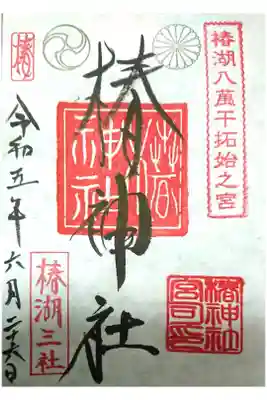 椿湖八萬干拓始之宮
椿神社
椿神社
宮司之印
椿湖三社
令和五年
六月二十六日